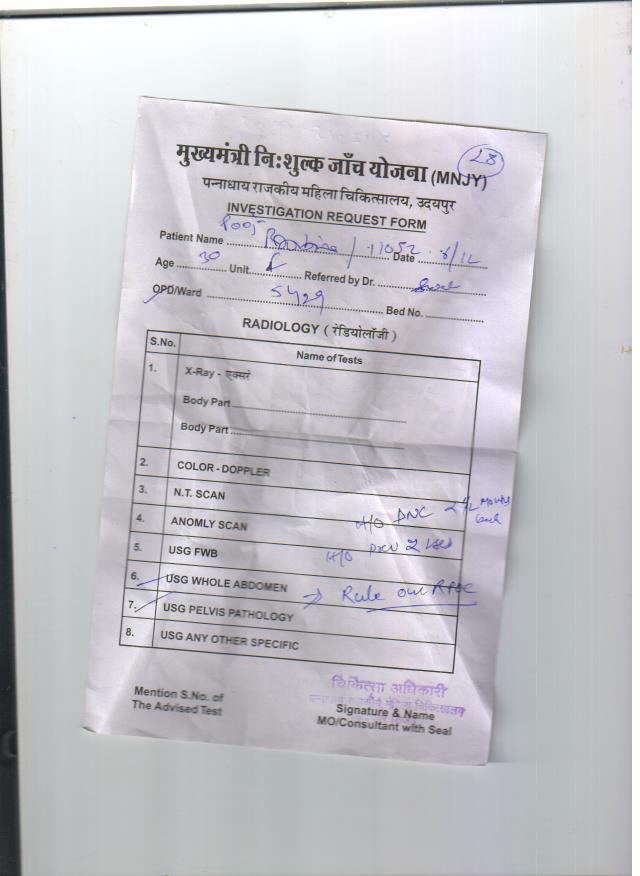 28
मुख्यमंत्री नि:शुल्क जाँच योजना (MNJY)
पन्नाधाय राजकीय महिला चिकित्सालय, उदयपुर
INVESTIGATION REQUEST FORM
Patient Name / 11052 Date 8/12
Age 30 Unit Referred by Dr.
OPD/Ward 5429 Bed No.
RADIOLOGY ( रेडियोलॉजी )
S.No. Name of Tests
1. X-Ray - एक्सरे
Body Part
Body Part
2. COLOR - DOPPLER
3. N.T. SCAN
4. ANOMLY SCAN H/O DNC 2 1/2 Months
5. USG FWB H/O
6. USG WHOLE ABDOMEN → Rule out RPOC
7. USG PELVIS PATHOLOGY
8. USG ANY OTHER SPECIFIC
Mention S.No. of
The Advised Test
चिकित्सा अधिकारी
Signature & Name
MO/Consultant with Seal